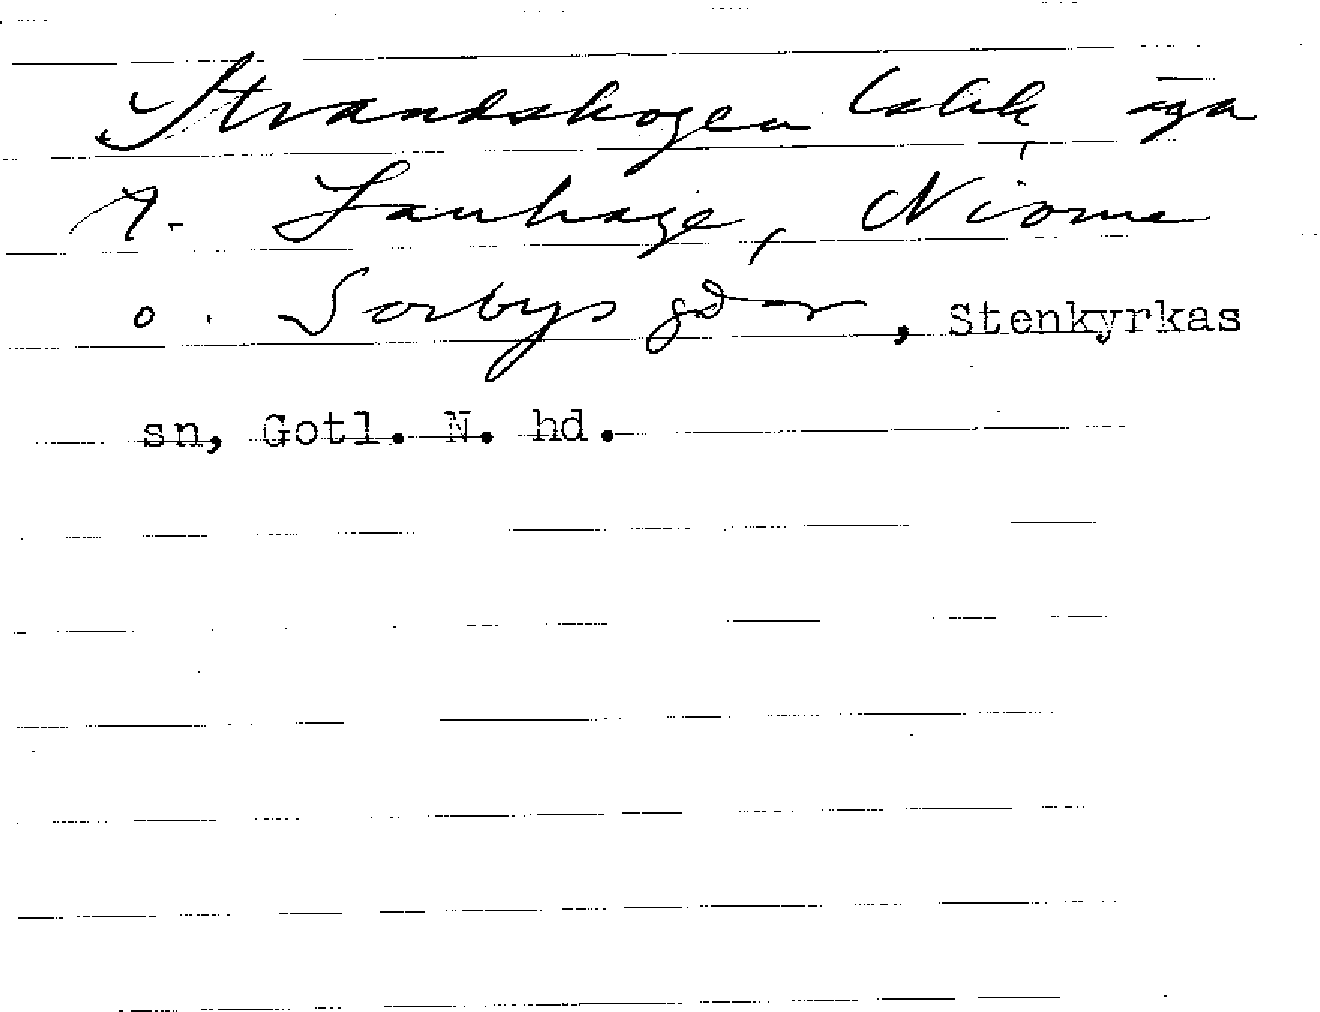 Strandskogen äga
t. Lauhage, Niome
o. Sorbys gdar, Stenkyrkas
sn, Gotl. N. hd.